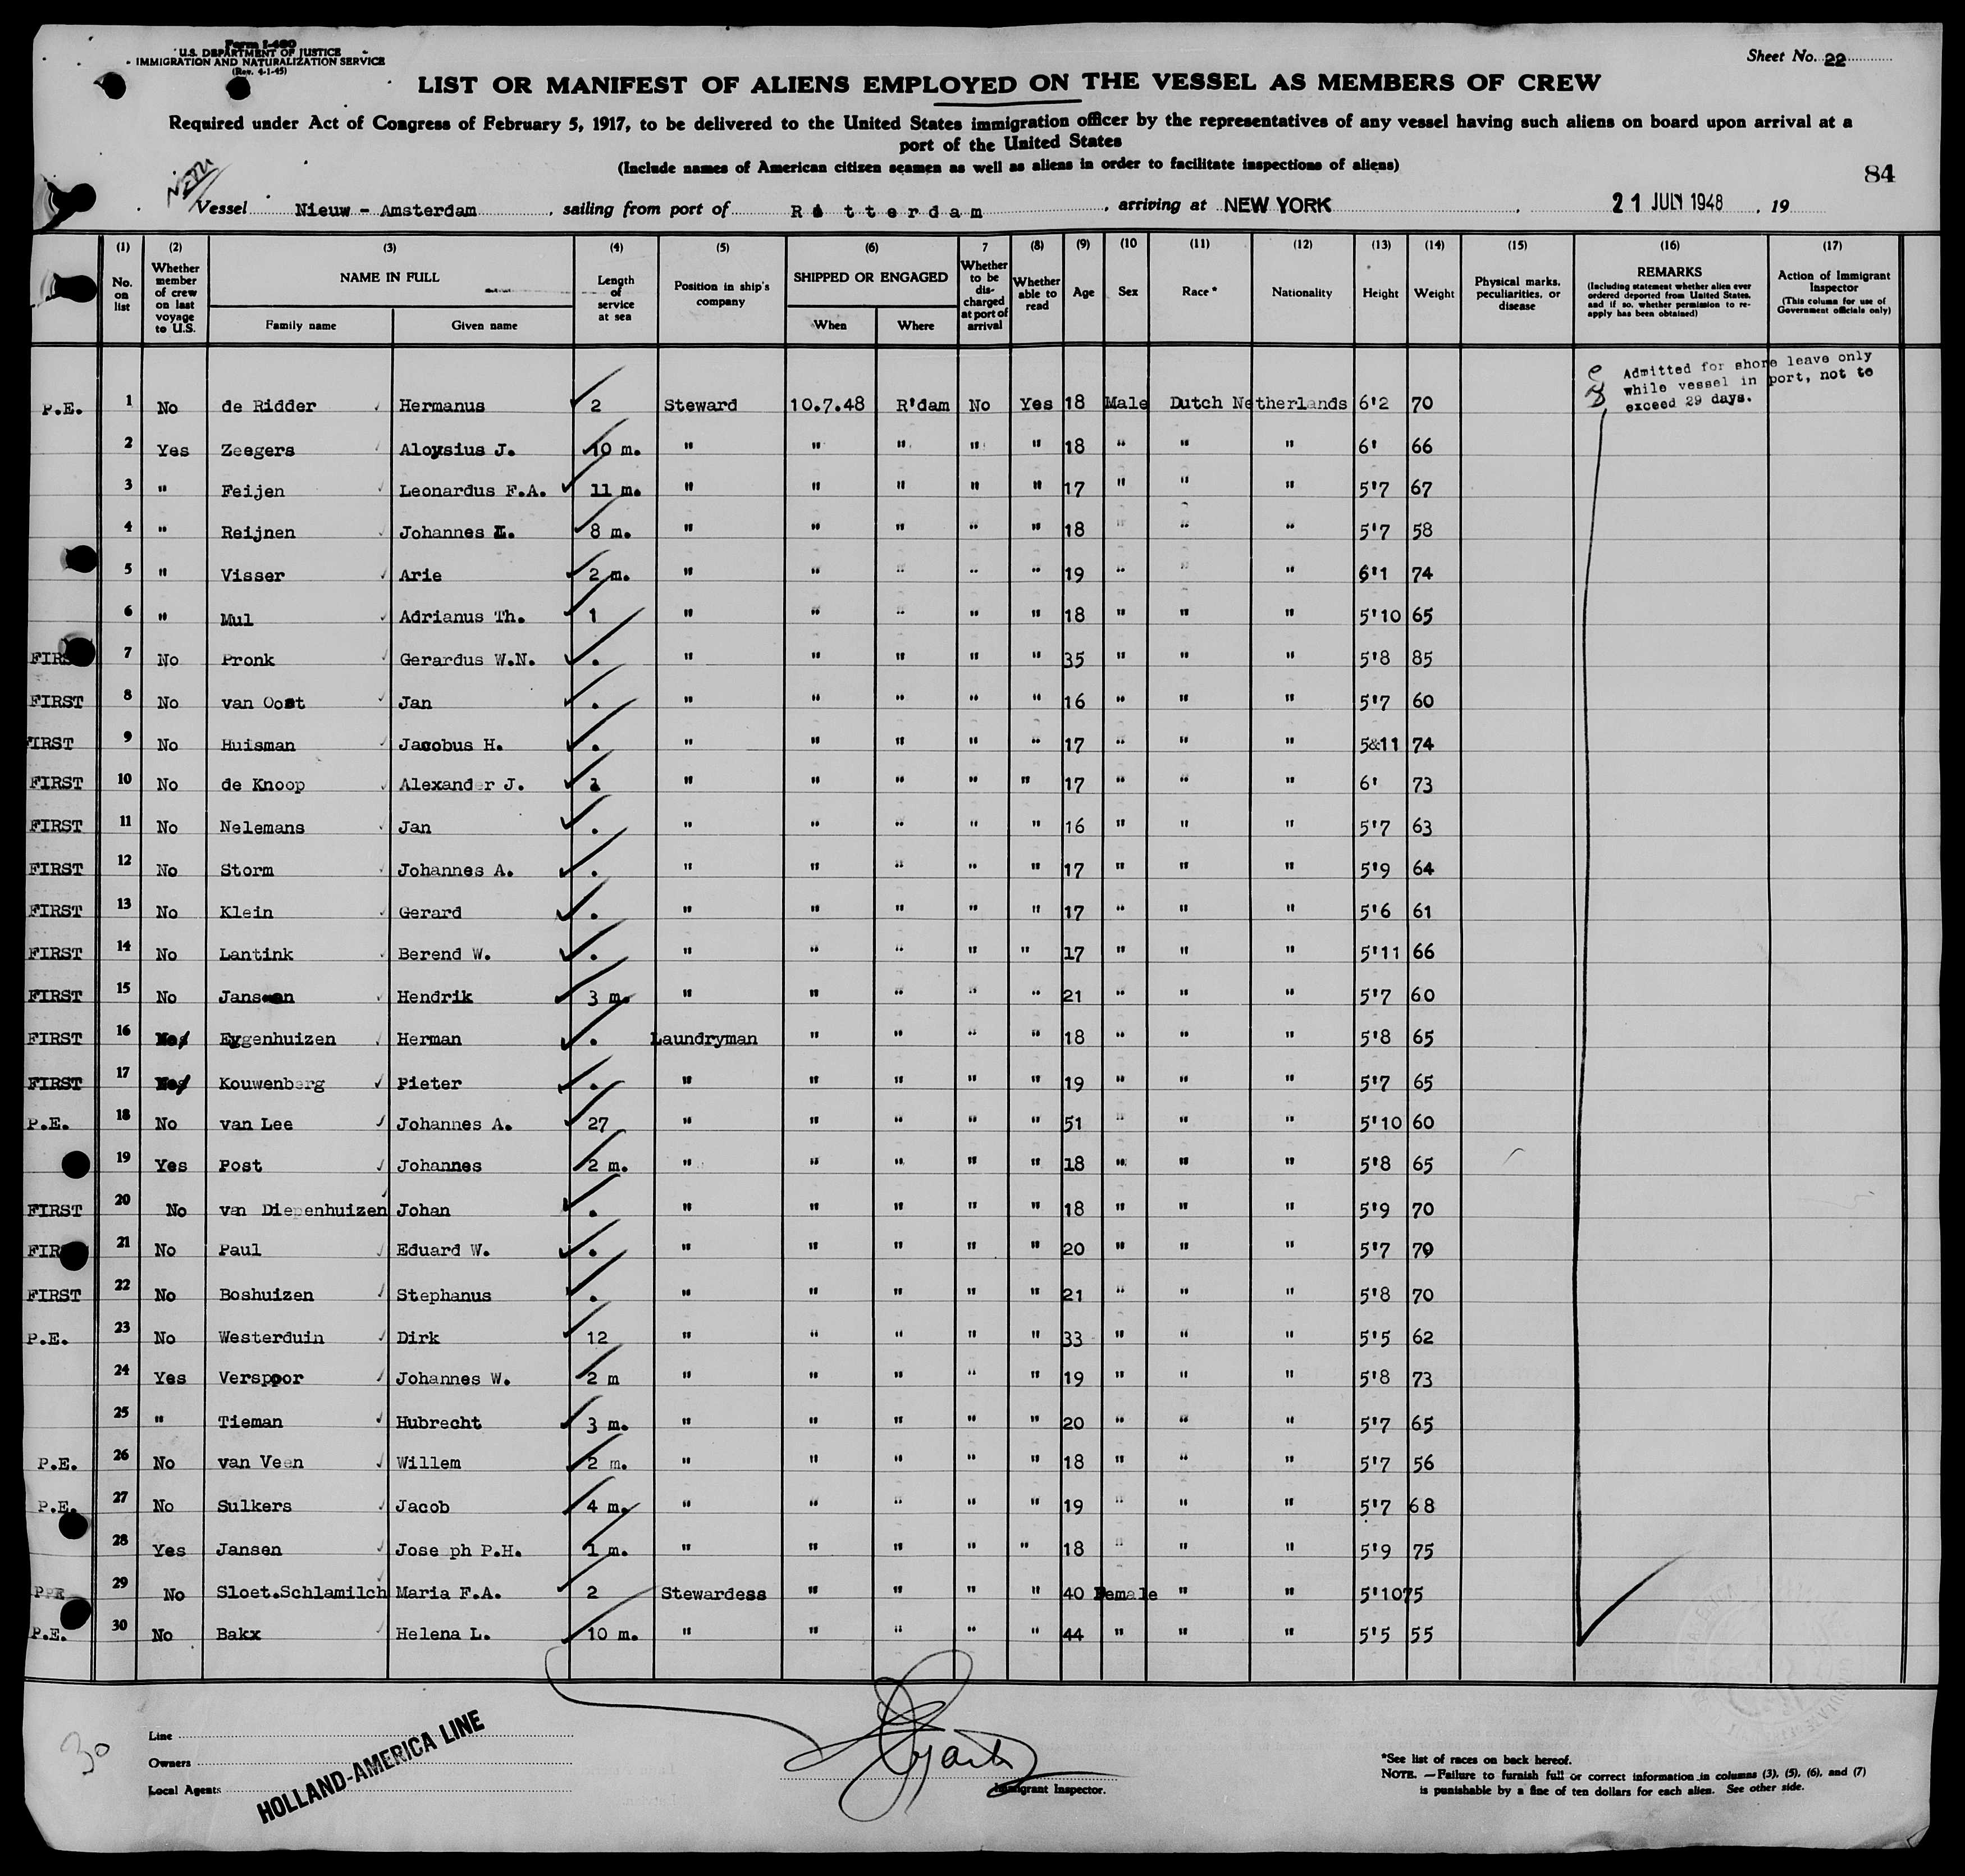 Form I-480
U.S. DEPARTMENT OF JUSTICE
IMMIGRATION AND NATURALIZATION SERVICE
(Rev. 4-1-45)
Sheet No. 22
LIST OR MANIFEST OF ALIENS EMPLOYED ON THE VESSEL AS MEMBERS OF CREW
Required under Act of Congress of February 5, 1917, to be delivered to the United States immigration officer by the representatives of any vessel having such aliens on board upon arrival at a
port of the United States
(Include names of American citizen seamen as well as aliens in order to facilitate inspections of aliens)
84
Vessel Nieuw - Amsterdam, sailing from port of Rotterdam, arriving at NEW YORK, 21 JULY 1948, 19
(1) (2) (3) (4) (5) (6) 7 (8) (9) (10 (11) (12) (13) (14) (15) (16) (17)
No. on list
Whether member of crew on last voyage to U.S.
NAME IN FULL
Family name
Given name
Length of service at sea
Position in ship's company
SHIPPED OR ENGAGED
When
Where
Whether to be discharged at port of arrival
Whether able to read
Age
Sex
Race*
Nationality
Height
Weight
Physical marks, peculiarities, or disease
REMARKS
(Including statement whether alien ever ordered deported from United States, and if so, whether permission to re-apply has been obtained)
Action of Immigrant Inspector
(This column for use of Government officials only)
Admitted for shore leave only
while vessel in port, not to
exceed 29 days.
P.E. 1 No de Ridder Hermanus 2 Steward 10.7.48 R'dam No Yes 18 Male Dutch Netherlands 6'2 70
2 Yes Zeegers Aloysius J. 10 m. " " " " " 18 " " " 6' 66
3 " Feijen Leonardus F.A. 11 m. " " " " " 17 " " " 5'7 67
4 " Reijnen Johannes L. 8 m. " " " " " 18 " " " 5'7 58
5 " Visser Arie 2 m. " " " " " 19 " " " 6'1 74
6 " Mul Adrianus Th. 1 " " " " " 18 " " " 5'10 65
FIRST 7 No Pronk Gerardus W.N. . " " " " " 35 " " " 5'8 85
FIRST 8 No van Oost Jan . " " " " " 16 " " " 5'7 60
FIRST 9 No Huisman Jacobus H. . " " " " " 17 " " " 5&11 74
FIRST 10 No de Knoop Alexander J. " " " " " 17 " " " 6' 73
FIRST 11 No Nelemans Jan . " " " " " 16 " " " 5'7 63
FIRST 12 No Storm Johannes A. . " " " " " 17 " " " 5'9 64
FIRST 13 No Klein Gerard . " " " " " 17 " " " 5'6 61
FIRST 14 No Lantink Berend W. . " " " " " 17 " " " 5'11 66
FIRST 15 No Hendrik 3 m. " " " " " 21 " " " 5'7 60
FIRST 16 Eygenhuizen Herman . Laundryman " " " " 18 " " " 5'8 65
FIRST 17 Kouwenberg Pieter . " " " " " 19 " " " 5'7 65
P.E. 18 No van Lee Johannes A. 27 " " " " " 51 " " " 5'10 60
19 Yes Post Johannes 2 m. " " " " " 18 " " " 5'8 65
FIRST 20 No van Diepenhuizen Johan . " " " " " 18 " " " 5'9 70
FIRST 21 No Paul Eduard W. . " " " " " 20 " " " 5'7 79
FIRST 22 No Boshuizen Stephanus . " " " " " 21 " " " 5'8 70
P.E. 23 No Westerduin Dirk 12 " " " " " 33 " " " 5'5 62
24 Yes Verspoor Johannes W. 2 m " " " " " 19 " " " 5'8 73
25 " Tieman Hubrecht 3 m. " " " " " 20 " " " 5'7 65
P.E. 26 No van Veen Willem 2 m. " " " " " 18 " " " 5'7 56
P.E. 27 No Sulkers Jacob 4 m. " " " " " 19 " " " 5'7 68
28 Yes Jansen Joseph P.H. 1 m. " " " " " 18 " " " 5'9 75
29 No Sloet.Schlamilch Maria F.A. 2 Stewardess " " " " 40 Female " " 5'10 75
P.E. 30 No Bakx Helena L. 10 m. " " " " " 44 " " " 5'5 55
30
Line
Owners
Local Agents
HOLLAND-AMERICA LINE
Immigrant Inspector.
*See list of races on back hereof.
NOTE.—Failure to furnish full or correct information in columns (3), (5), (6), and (7)
is punishable by a fine of ten dollars for each alien. See other side.